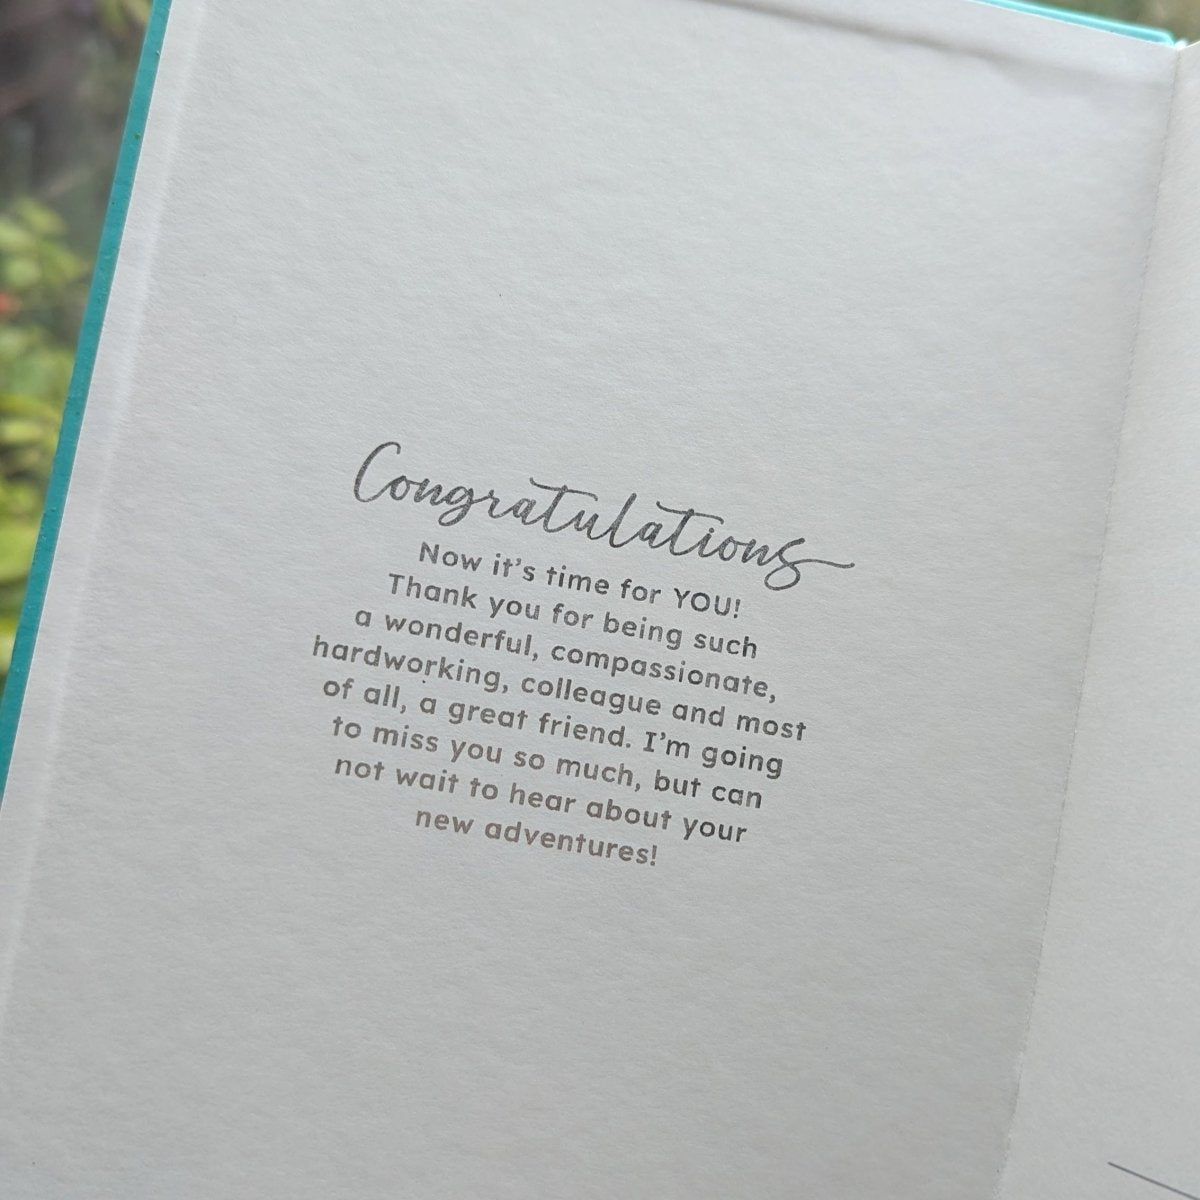 Congratulations
Now it's time for YOU!
Thank you for being such
a wonderful, compassionate,
hardworking, colleague and most
of all, a great friend. I'm going
to miss you so much, but can
not wait to hear about your
new adventures!